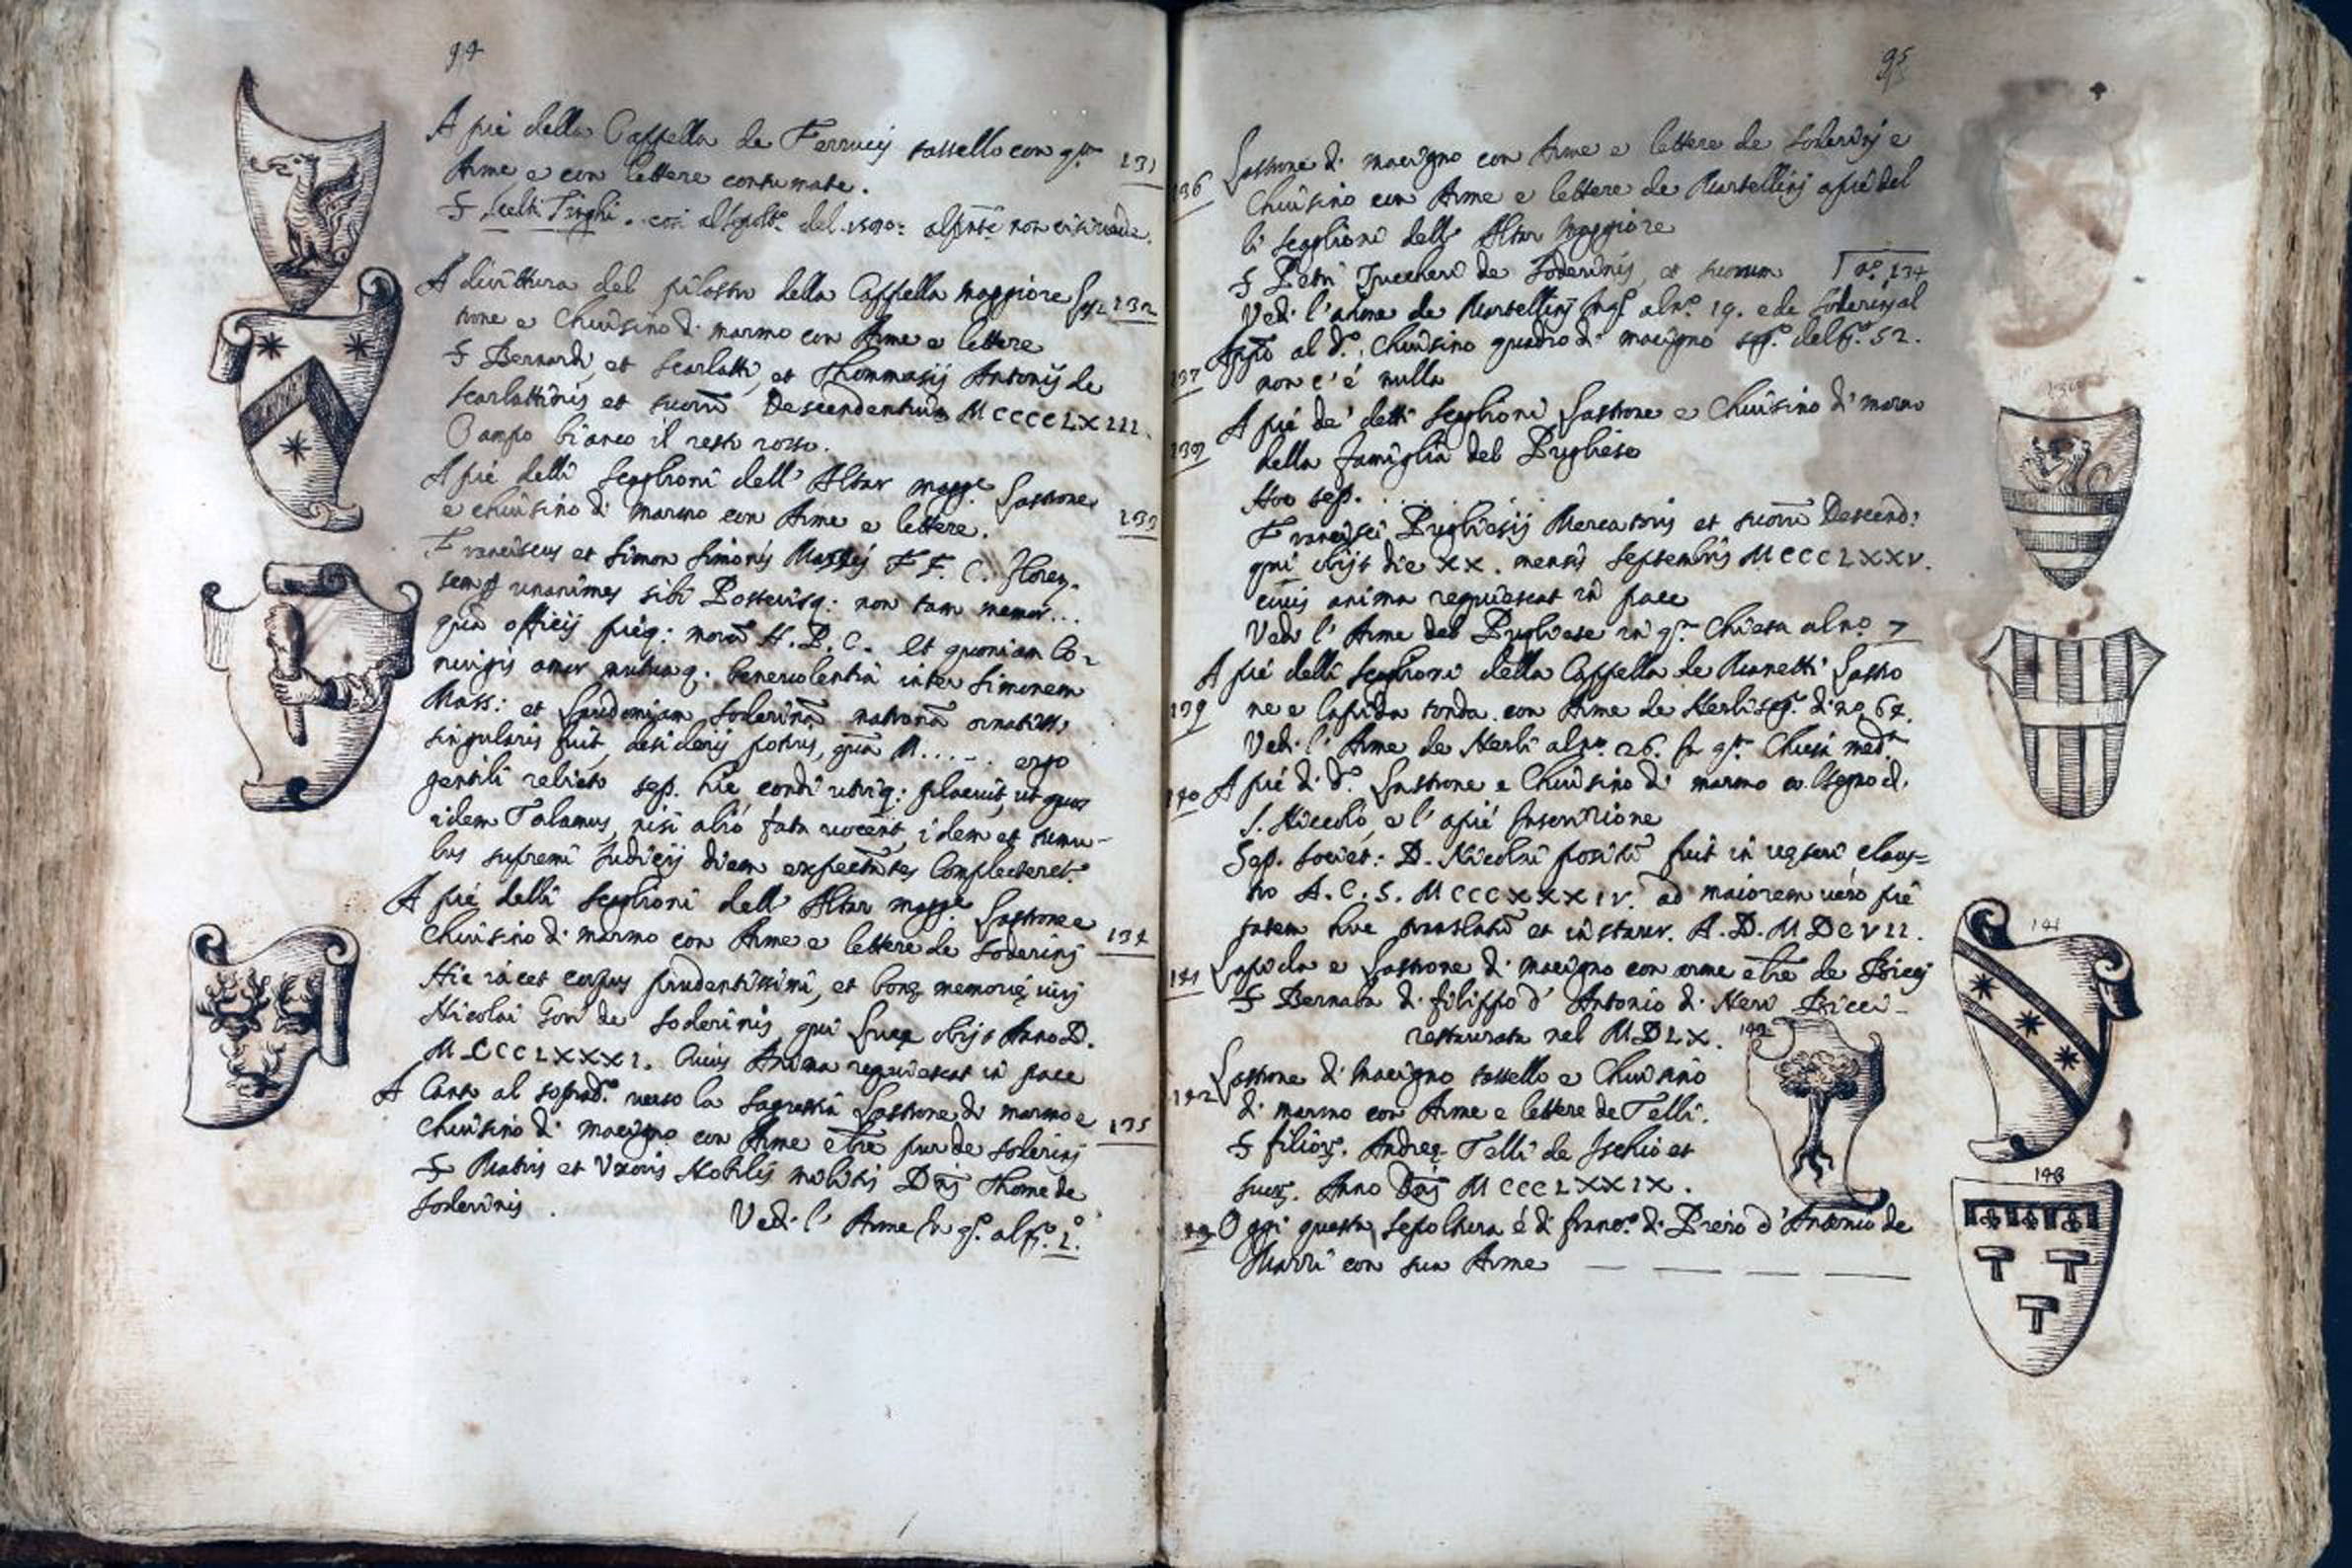 94
A piè della Cappella de Ferrucij tassello con qsta 131
Arme e con lettere consumate.
S. Tinghi. così al sepolt.o del 1590:
A dirittura del pilastro della Cappella maggiore Las= 132
trone e Chiusino di marmo con Arme e lettere
S Bernardi, et Scarlatti, et Thommasij Antonij de
Scarlattinis et suorū Descendentium MCCCCLXIII.
Campo bianco il resto rosso.
A piè delli Scaglioni dell' Altar magge Lastrone 133
e chiusino di marmo con Arme e lettere.
Franciscus et Simon Simonis FF. C. Floren.
unanimes sibi Posterisq: non tam memor...
officij pieq: H. P. C. et quoniam Co-
niugis amor mutuaq. benevolentia inter Simonem
Mass: et Soderinā matronā ornatiss.
singularis fuit, desiderij potius, quā N...... ergo
gentili relicto sep. hic condi utriq: placuit, ut quos
idem Talamus, nisi aliò fata vocent, idem et tumu-
lus supremi Iudicij diem expectātes complecteret.r
A piè delli Scaglioni dell' Altar magge Lastrone e 134
Chiusino di marmo con Arme e lettere de Soderinj
Hic iacet corpus prudentissimi, et bonę memorię virj
Nicolai Gori de Soderinis, qui Lucę obijt Anno D.
MCCCLXXXI. Cuius Anima requiescat in pace
A Canto al soprad.o verso la Sagrestia Lastrone di marmo e 135
Chiusino di macigno con Arme e lre pur de Soderinj
S Matris et Vxoris Nobilis militis Dnj Thome de
Soderinis.
Vedi l' Arme in q.o al n.o 2.
95
136 Lastrone di macigno con Arme e lettere de Soderinj e
Chiusino con Arme e lettere de Martellinj a piè del
li scaglioni dell' Altar Maggiore
S Petri de Soderinis, et suorum n.o 134
Vedi l'arme de Martellinj al n.o 19. e de Soderinj al
137 Appo al d.o Chiusino quadro di macigno 52.
non c'è nulla
138 A piè de' detti Scaglioni Lastrone e Chiusino di marmo
della famiglia del Pugliese
Hoc sep. . . . . . .
Francisci Pugliesij Mercatoris et suorū Descend:
qui obijt die XX. mensis Septembris MCCCLXXV.
cuius anima requiescat in pace
Vedi l' Arme del Pugliese in q.ta Chiesa al n.o 7
A piè delli Scaglioni della Cappella de Manetti Lastro
139 ne e lapida tonda con Arme de Nerli di no 64.
Vedi l' Arme de Nerli al n.o 26. in q.ta Chiesa med.a
140 A piè di d.o Lastrone e Chiusino di marmo co. l segno d.
S. Niccolò, e l' apiè Inscrizione
Sep. Societ: D. Nicolai positū fuit in veteri claus=
tro A. C. S. MCCCXXXIV. ad maiorem vero pie
tatem huc translatū et instaur. A. D. MDCVII.
141 Lapida e Lastrone di macigno con arme e lre de Biccj
S Bernaba di Filippo d' Antonio di Neri Bicci-
restaurata nel MDLX.
142 Lastrone di macigno tassello e Chiusino
di marmo con Arme e lettere de Telli.
S filior. Andreę Telli de Ischio et
suor. Anno Dnj MCCCLXXIX.
143 Oggi questa sepoltura è di Franc.o di Piero d'Antonio de
Marri con sua Arme
141
142
143